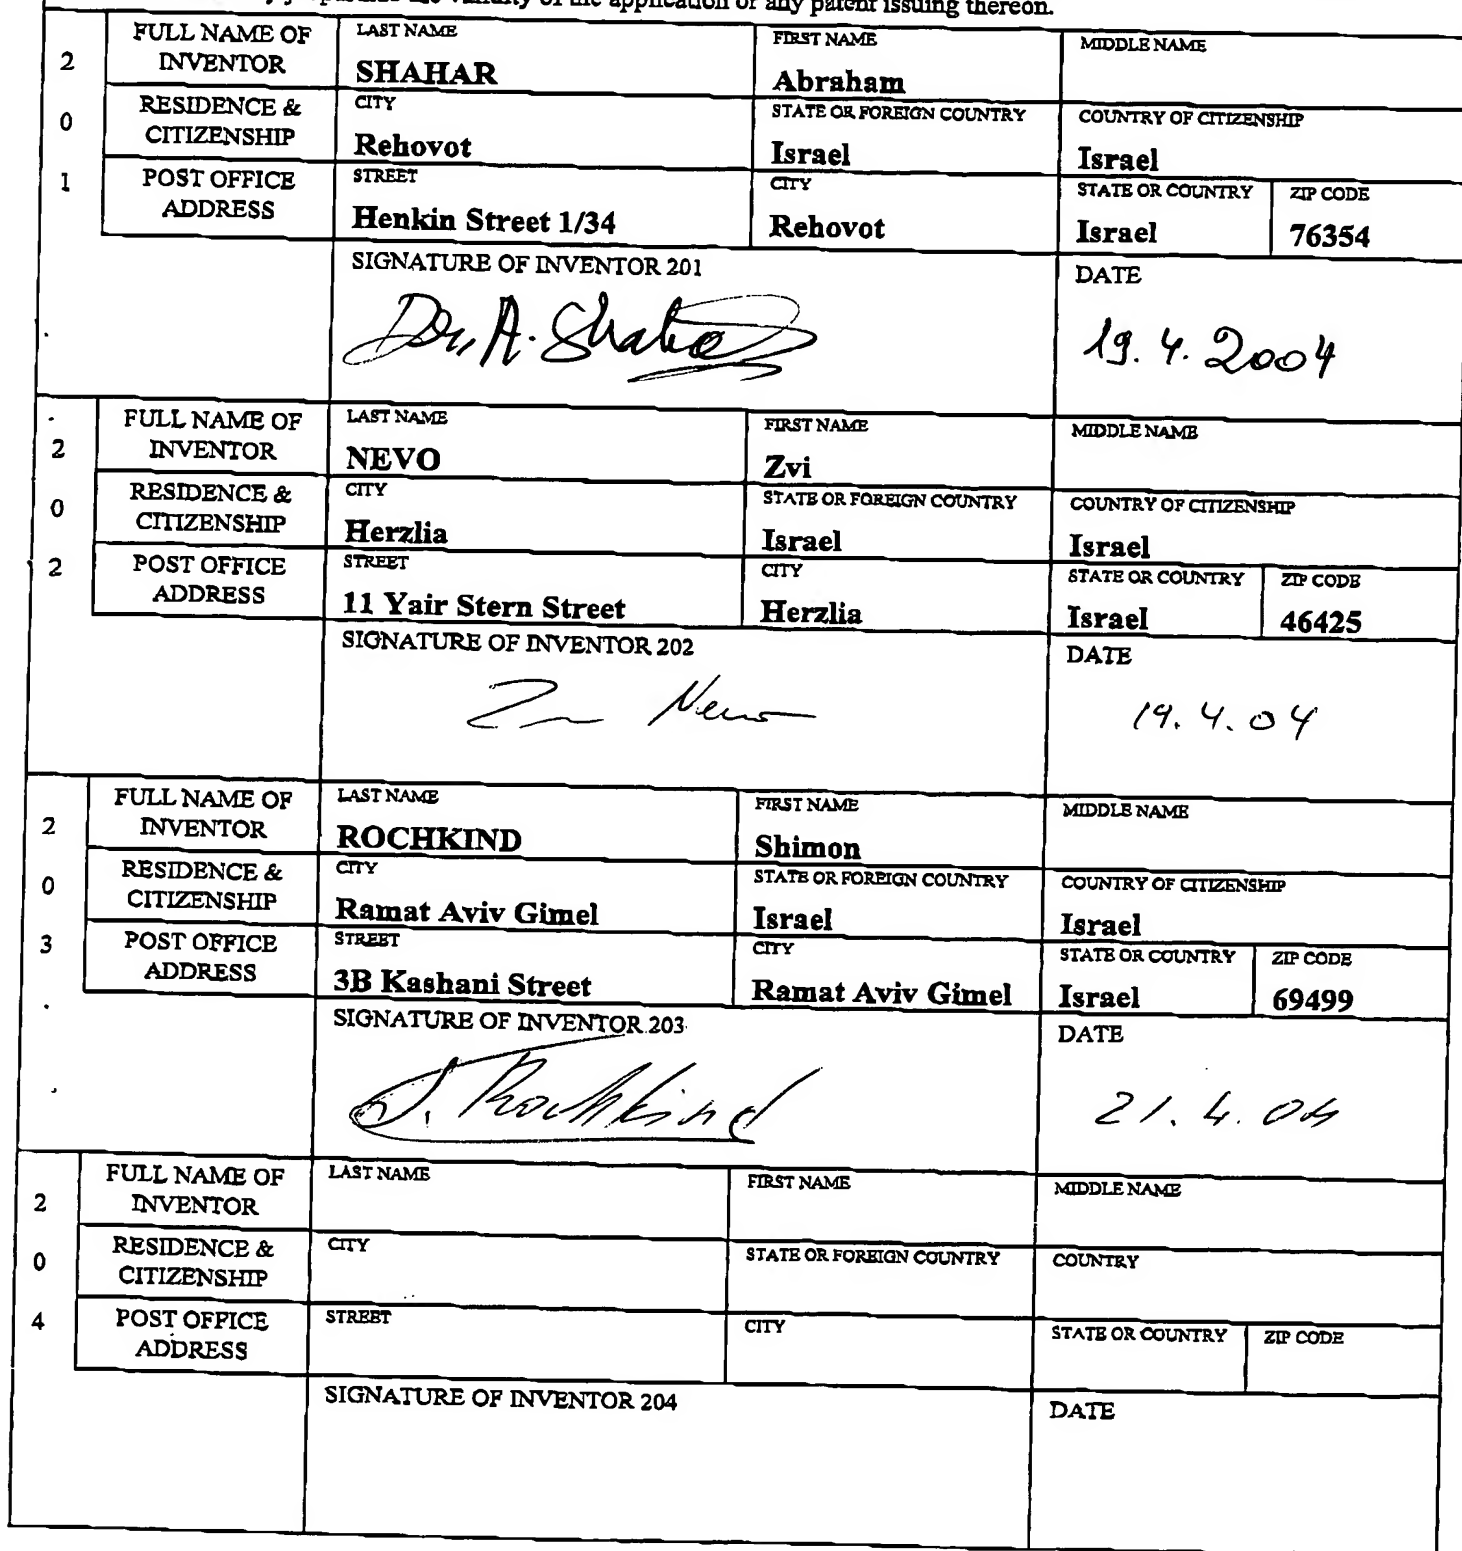 the validity of the application or any patent issuing thereon.
2 FULL NAME OF INVENTOR LAST NAME SHAHAR FIRST NAME Abraham MIDDLE NAME
0 RESIDENCE & CITIZENSHIP CITY Rehovot STATE OR FOREIGN COUNTRY Israel COUNTRY OF CITIZENSHIP Israel
1 POST OFFICE ADDRESS STREET Henkin Street 1/34 CITY Rehovot STATE OR COUNTRY Israel ZIP CODE 76354
SIGNATURE OF INVENTOR 201 DATE
Dr. A. Shahar 19.4.2004
2 FULL NAME OF INVENTOR LAST NAME NEVO FIRST NAME Zvi MIDDLE NAME
0 RESIDENCE & CITIZENSHIP CITY Herzlia STATE OR FOREIGN COUNTRY Israel COUNTRY OF CITIZENSHIP Israel
2 POST OFFICE ADDRESS STREET 11 Yair Stern Street CITY Herzlia STATE OR COUNTRY Israel ZIP CODE 46425
SIGNATURE OF INVENTOR 202 DATE
Zvi Nevo 19.4.04
2 FULL NAME OF INVENTOR LAST NAME ROCHKIND FIRST NAME Shimon MIDDLE NAME
0 RESIDENCE & CITIZENSHIP CITY Ramat Aviv Gimel STATE OR FOREIGN COUNTRY Israel COUNTRY OF CITIZENSHIP Israel
3 POST OFFICE ADDRESS STREET 3B Kashani Street CITY Ramat Aviv Gimel STATE OR COUNTRY Israel ZIP CODE 69499
SIGNATURE OF INVENTOR 203 DATE
S. Rochkind 21.4.04
2 FULL NAME OF INVENTOR LAST NAME FIRST NAME MIDDLE NAME
0 RESIDENCE & CITIZENSHIP CITY STATE OR FOREIGN COUNTRY COUNTRY
4 POST OFFICE ADDRESS STREET CITY STATE OR COUNTRY ZIP CODE
SIGNATURE OF INVENTOR 204 DATE